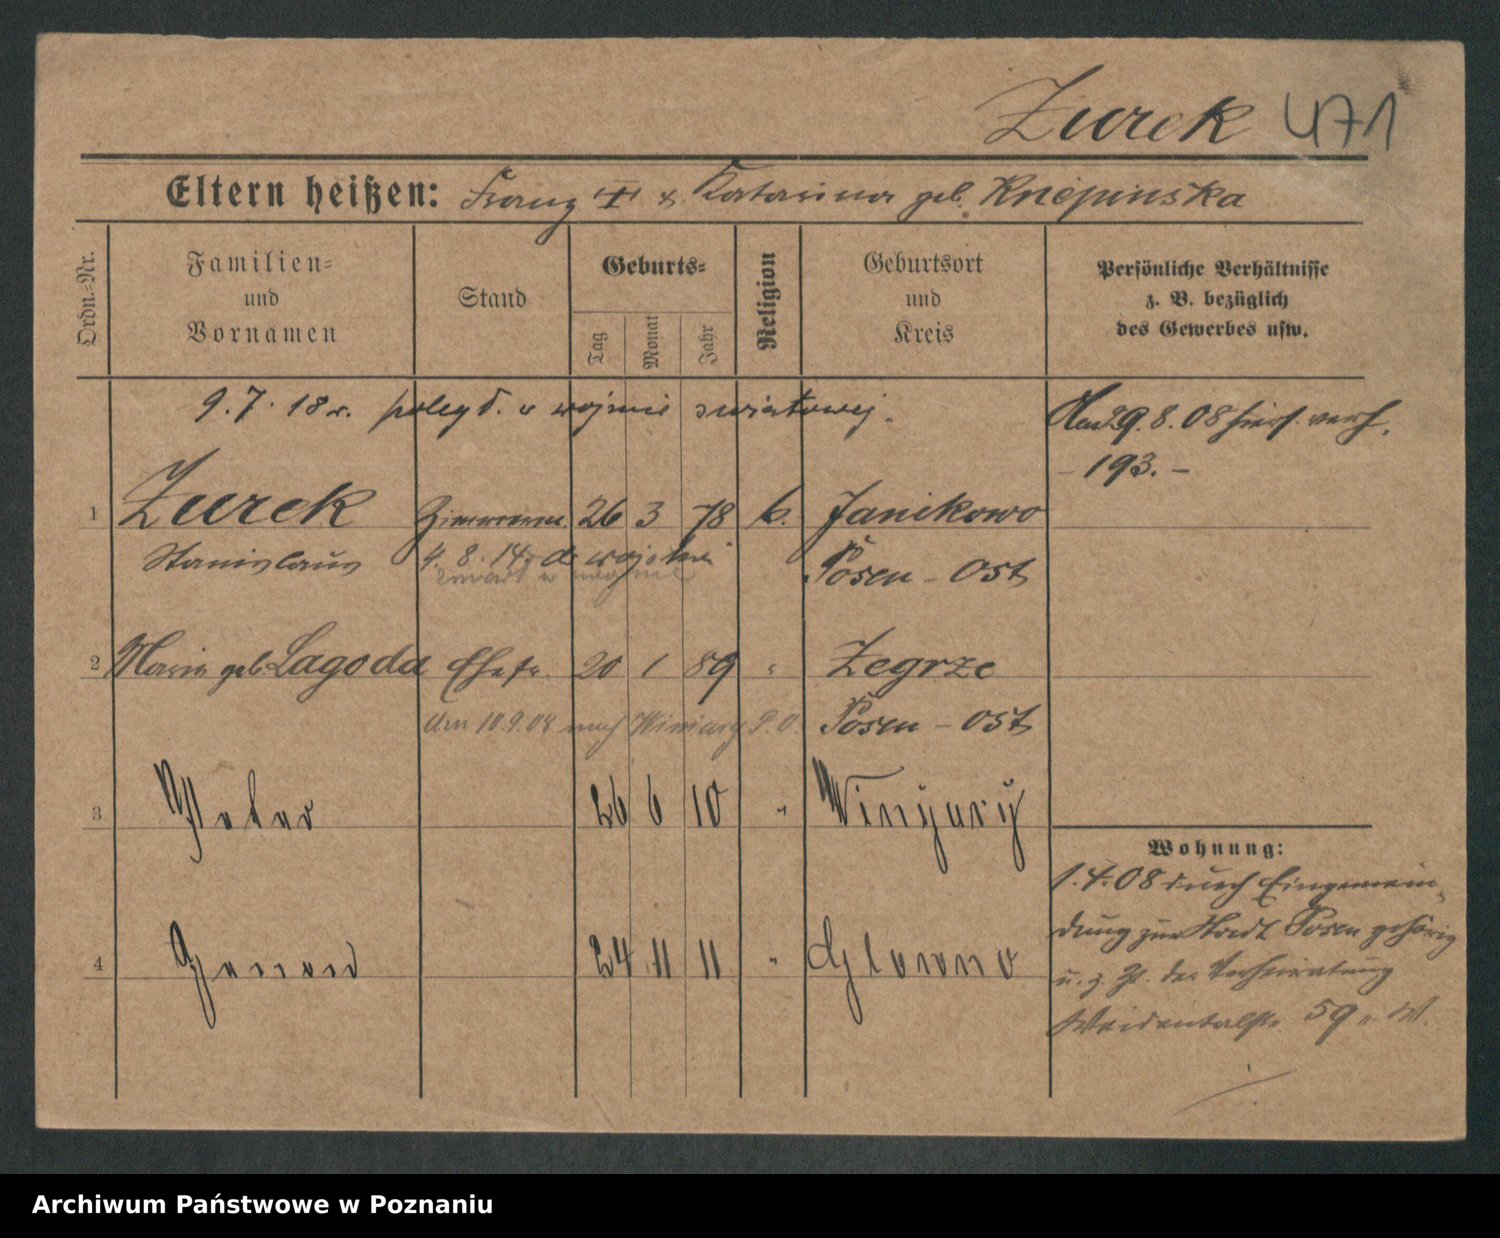 Zurek 471
Eltern heißen: Franz † & Katarina geb. Knepinska
Ordn.=Nr.
Familien=
und
Vornamen
Stand
Geburts=
Tag
Monat
Jahr
Religion
Geburtsort
und
Kreis
Persönliche Verhältnisse
z. B. bezüglich
des Gewerbes usw.
9. 7. 18 r. poległ. w wojnie swiatowej.
Am 29. 8. 08 hier verh.
– 193. –
1 Zurek Zimmerm. 26 3 78 k. Janikowo
Stanislaus 4. 8. 14 do wojska Posen – Ost
zmarł w wojnie
2 Maria geb. Lagoda Ehefr. 20 1 89 " Zegrze
den 10.9.08 nach Winiary P.O. Posen – Ost
3 26 6 10 " Winyary
4 24 11 11 " Glowno
Wohnung:
1.4.08 durch Eingemein-
dung zur Stadt Posen gehörig
u. z. Zt. der Verheiratung
59
Archiwum Państwowe w Poznaniu